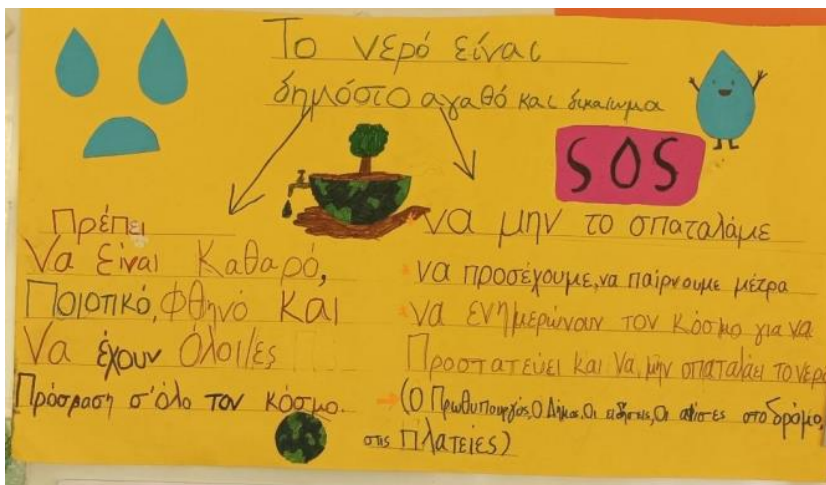 Το νερό είναι
δημόσιο αγαθό και δικαίωμα
SOS
Πρέπει
Να είναι καθαρό,
Ποιοτικό, φθηνό και
Να έχουν όλοι/ες
Πρόσβαση σ'όλο τον κόσμο.
να μην το σπαταλάμε
να προσέχουμε, να παίρνουμε μέτρα
να ενημερώνουν τον κόσμο για να
Προστατεύει και να μην σπαταλάει το νερό
(Ο Πρωθυπουργός, Ο Δήμος, Οι ειδήσεις, Οι αφίσες στο δρόμο,
στις Πλατείες)